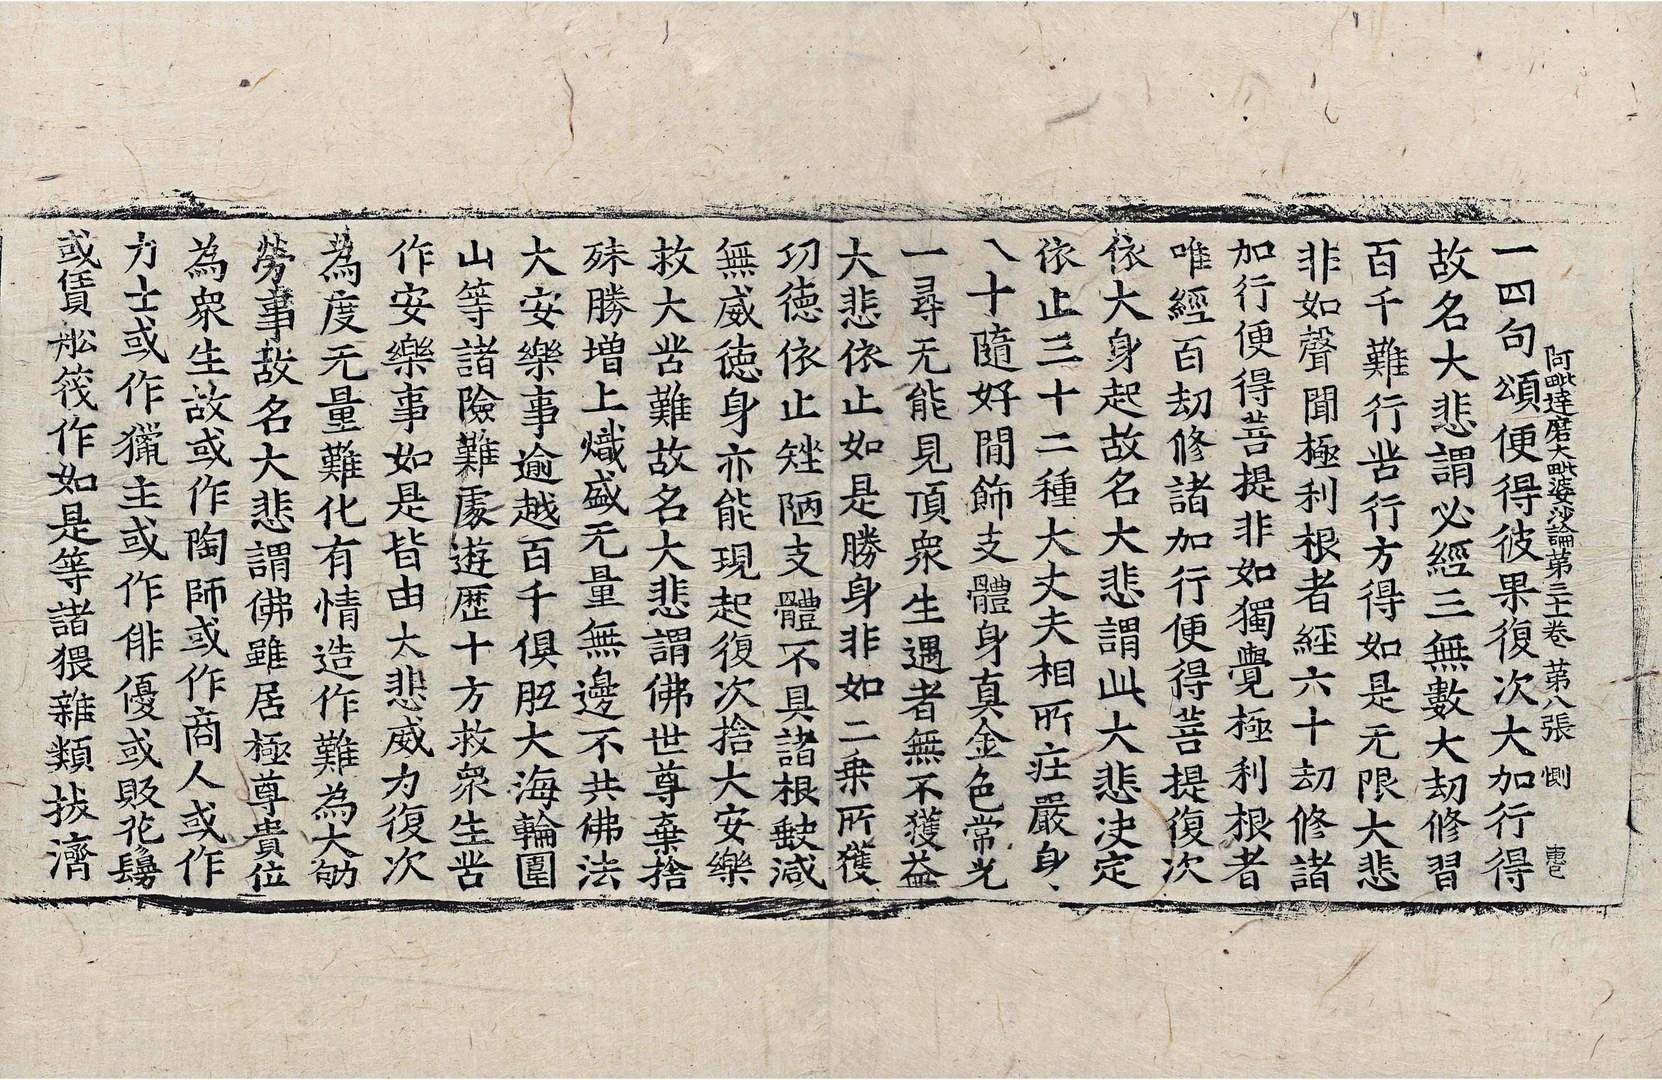 阿毗達磨大毗婆沙論第三十一卷 第八張 惻
一四句頌便得彼果復次大加行得
故名大悲謂必經三無數大劫修習
百千難行苦行方得如是无限大悲
非如聲聞極利根者經六十劫修諸
加行便得菩提非如獨覺極利根者
唯經百劫修諸加行便得菩提復次
依大身起故名大悲謂此大悲决定
依止三十二種大丈夫相所莊嚴身
八十隨好閒飾支體身真金色常光
一尋无能見頂衆生遇者無不獲益
大悲依止如是勝身非如二乗所獲
功徳依止矬陋支體不具諸根缺减
無威徳身亦能現起復次捨大安樂
救大苦難故名大悲謂佛世尊棄捨
殊勝増上熾盛无量無邊不共佛法
大安樂事逾越百千俱胝大海輪圍
山等諸險難處遊歴十方救衆生苦
作安樂事如是皆由大悲威力復次
為度无量難化有情造作難為大劬
勞事故名大悲謂佛雖居極尊貴位
為衆生故或作陶師或作商人或作
力士或作獵主或作俳優或販花鬘
或賃舩筏作如是等諸猥雜類拔濟